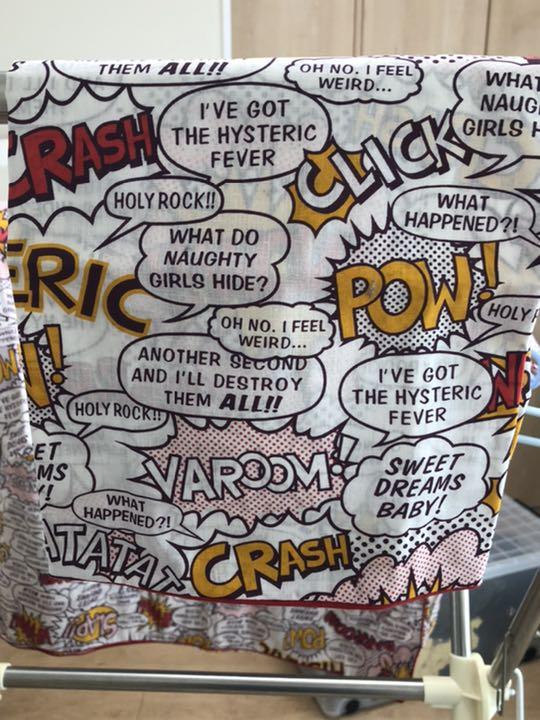 THEM ALL!!
OH NO. I FEEL
WEIRD...
WHAT
NAUG
GIRLS H
I'VE GOT
THE HYSTERIC
FEVER
CRASH
CLICK
HOLY ROCK!!
WHAT
HAPPENED?!
WHAT DO
NAUGHTY
GIRLS HIDE?
ERIC
POW!
HOLY R
OH NO. I FEEL
WEIRD...
ANOTHER SECOND
AND I'LL DESTROY
THEM ALL!!
I'VE GOT
THE HYSTERIC
FEVER
N!
HOLY ROCK!!
VAROOM!
SWEET
DREAMS
BABY!
ET
MS
Y!
WHAT
HAPPENED?!
TATATAT
CRASH
SLAP!!
POW!